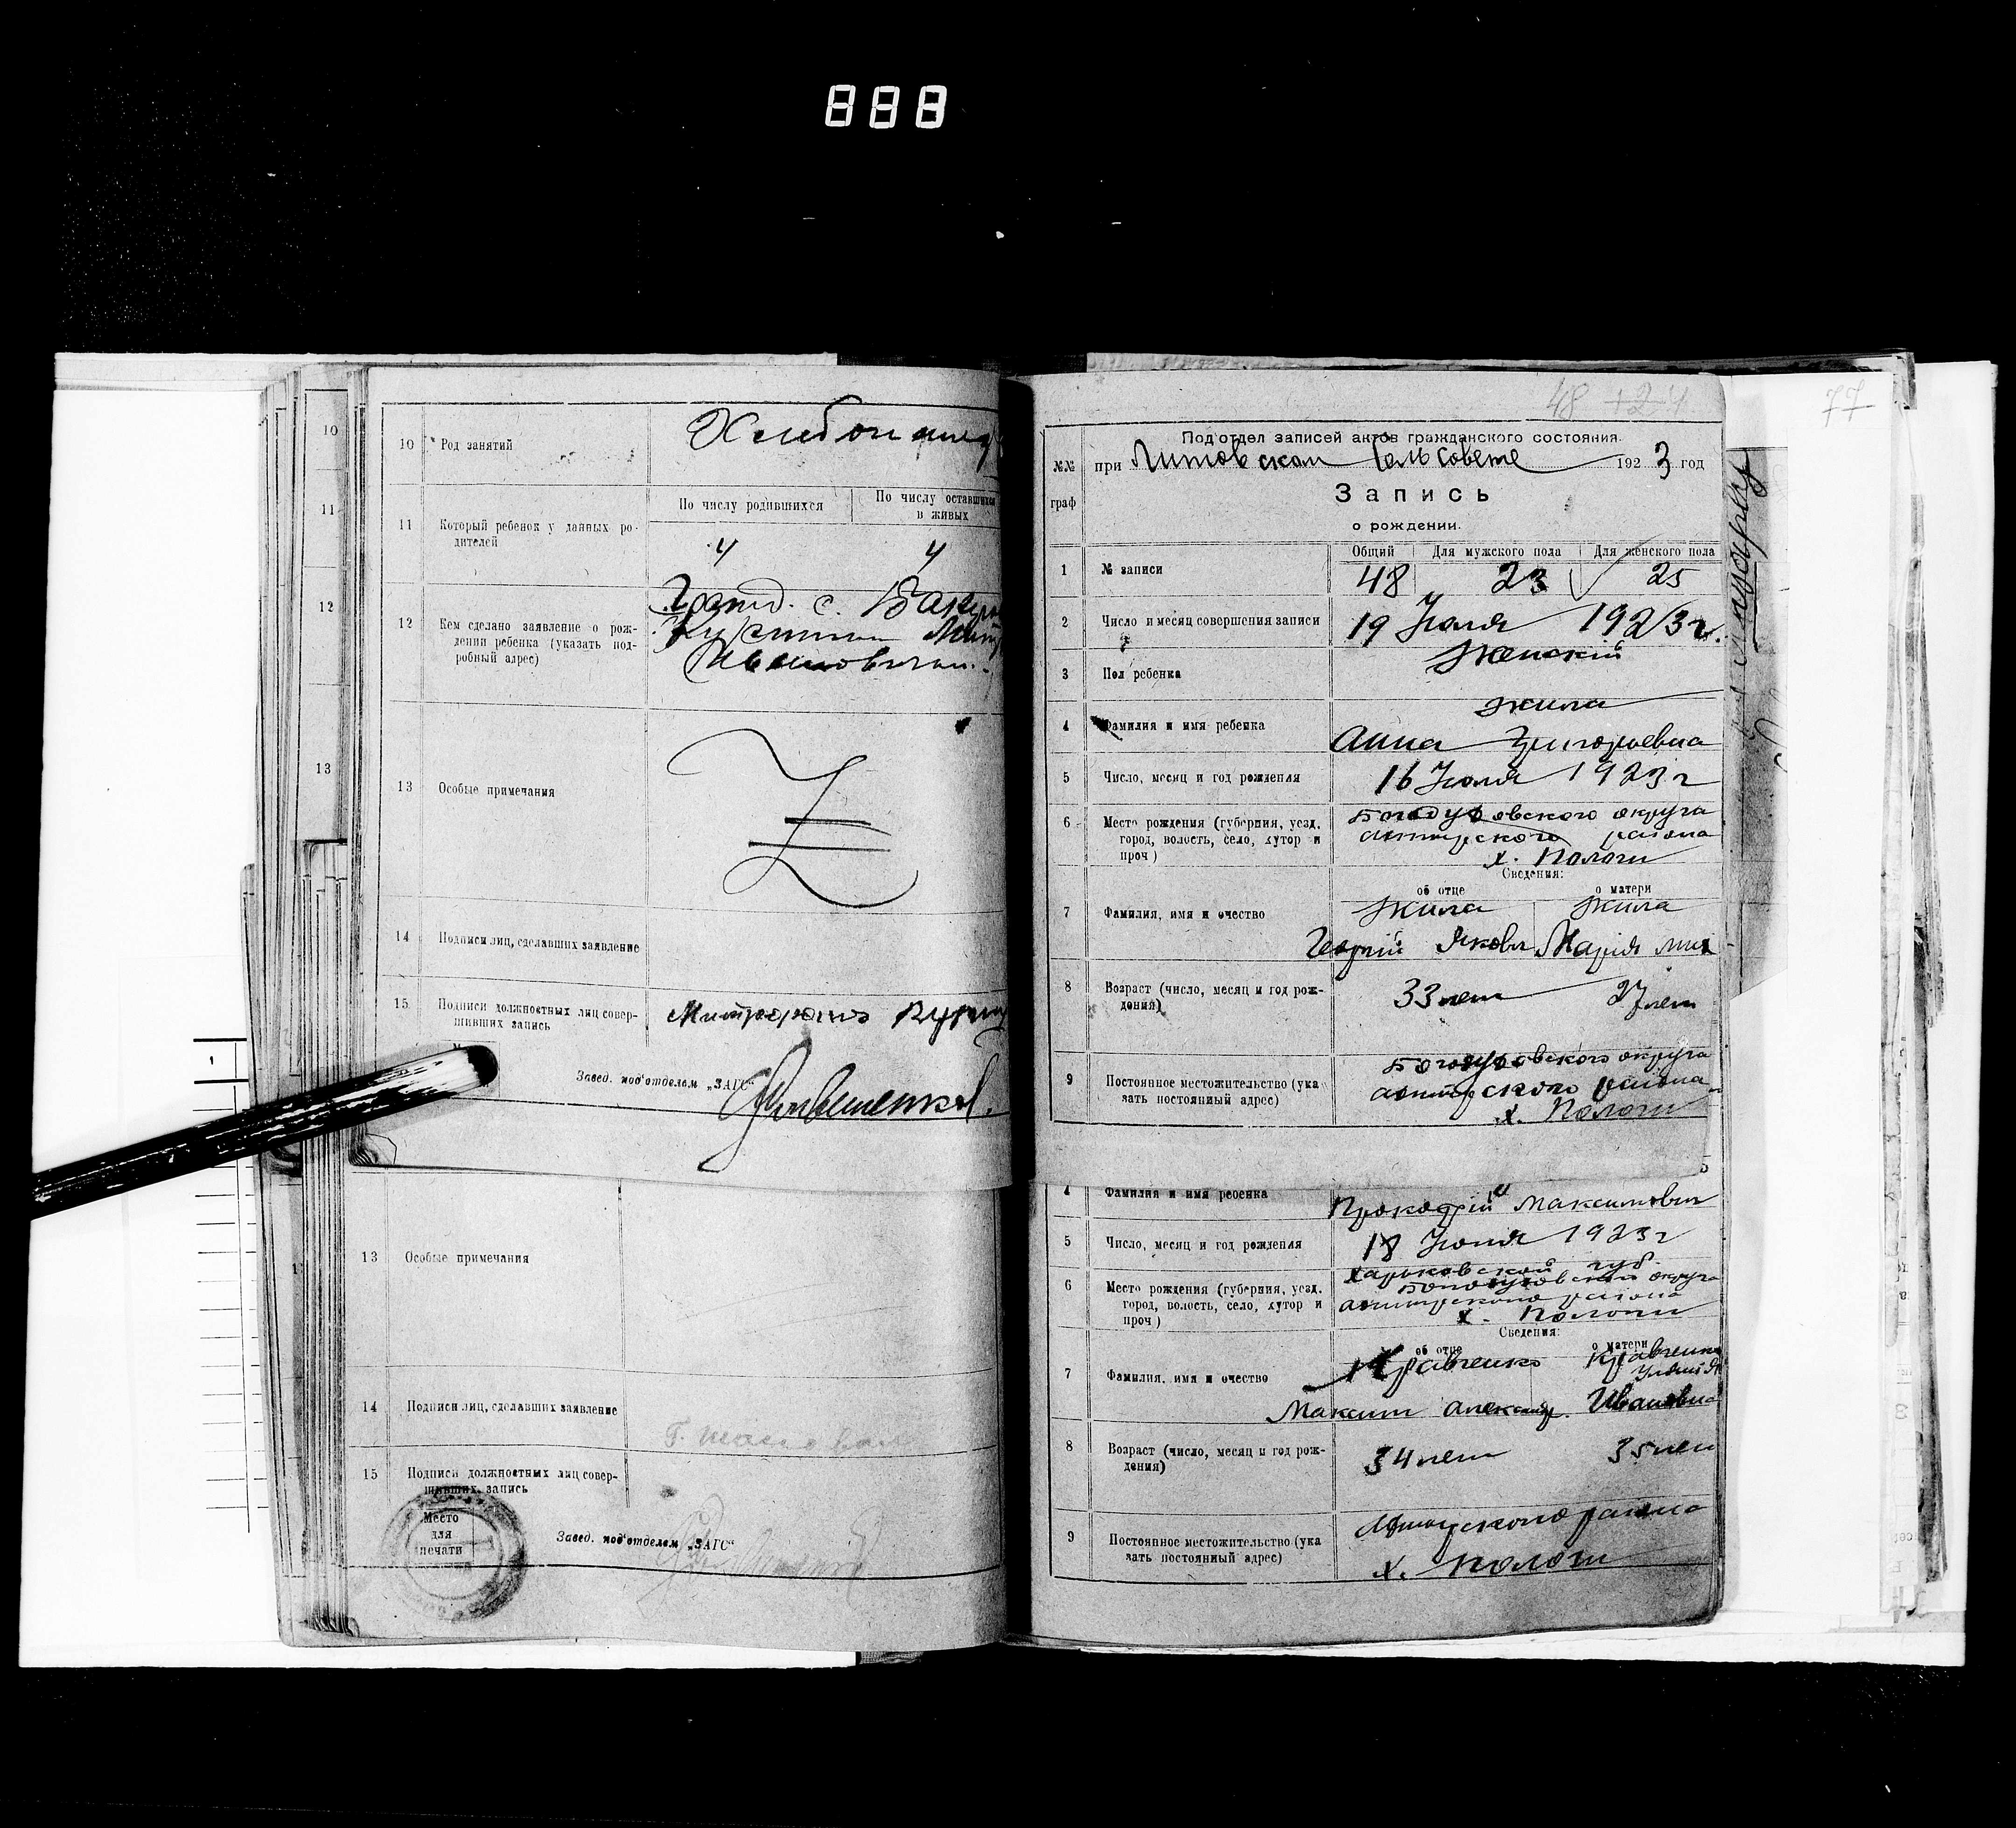 888
10 Род занятий Хлебопашец
11 Который ребенок у данных ро-
дителей
По числу родившихся По числу оставшихся
в живых
4 4
12 Кем сделано заявление о рож-
дении ребенка (указать под-
робный адрес)
Гражд. с.
Ивановичем.
13 Особые примечания
14 Подписи лиц, сделавших заявление
15 Подписи должностных лиц совер-
шивших запись
Завед. под'отделом „ЗАГС“
13 Особые примечания
14 Подписи лиц, сделавших заявление
15 Подписи должностных лиц совер-
шивших запись
Место
для
печати
Завед. под'отделом „ЗАГС“
10
11
12
13
1
77
48
Под'отдел записей актов гражданского состояния.
№№
граф
при Литовском Сельсовете 1923 год
Запись
о рождении.
Общий Для мужского пола Для женского пола
1 № записи 48 23 25
2 Число и месяц совершения записи 19 Июля 1923 г.
3 Пол ребенка Женский
4 Фамилия и имя ребенка Жила
Анна Григорьевна
5 Число, месяц и год рождения 16 Июля 1923 г
6 Место рождения (губерния, уезд,
город, волость, село, хутор и
проч)
Богодуховского округа
района
х. Пологи
Сведения:
об отце о матери
7 Фамилия, имя и очество Жила Жила
Георгий Яковл Мария Мих
8 Возраст (число, месяц и год рож-
дения)
33 лет 27 лет
9 Постоянное местожительство (ука
зать постоянный адрес)
Богодуховского округа
района
х. Пологи
4 Фамилия и имя ребенка Прокофий Максимович
5 Число, месяц и год рождения 18 Июля 1923 г
6 Место рождения (губерния, уезд,
город, волость, село, хутор и
проч)
Харьковской губ.
Богодуховский округа
района
х. Пологи
Сведения:
об отце о матери
7 Фамилия, имя и очество Кравченко Кравченко
Максим Александр. Ивановна
8 Возраст (число, месяц и год рож-
дения)
34 лет 35 лет
9 Постоянное местожительство (ука
зать постоянный адрес)
района
х. Пологи